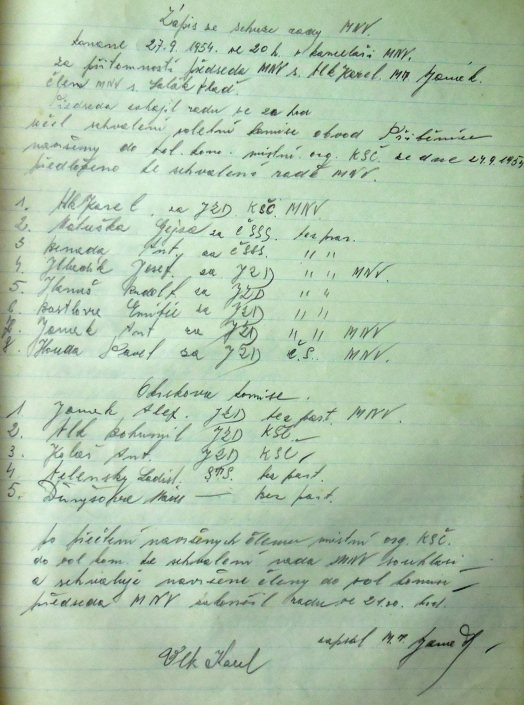 Zápis ze schuze rady MNV.
konané 27.9. 1954 ve 20 h. v kanceláři MNV.
za přítomnosti předseda MNV s. Vlk Karel. Mt Jamek.
člena MNV s. Vlad
Předseda zahájil radu ve 20 hod
účel schválení volební komise obvod Přiběnice
navrženy do vol. kom. místní org. KSČ. ze dne 27.9.1954
předloženo ke schválení radě MNV.
1. Vlk Karel za JZD KSČ. MNV
2. Matuška Gejza za ČSSS. bez par.
3 Beneda Ant. za ČSSS. " "
4. Josef. za JZD " " MNV.
5. Hanuš Rudolf za JZD " "
6. Emilie za JZD " "
7. Jamek Ant za JZD " " MNV
8. Houda Karel za JZD č.s. MNV.
Okrskova komise.
1 Jamek Alex. JZD bez part. MNV.
2. Vlk Bohumil JZD KSČ.
3. Ant. JZD KSČ
4 Zelensky Ladisl. STS. bez part.
5. — bez part.
po přečtení navržených členu místní org. KSČ.
do vol kom. ke schválení rada MNV souhlasí
a schvaluje navržené členy do vol komise
předseda MNV zakončil radu ve 21.00. hod.
zapsal Mt Jamek
Vlk Karel